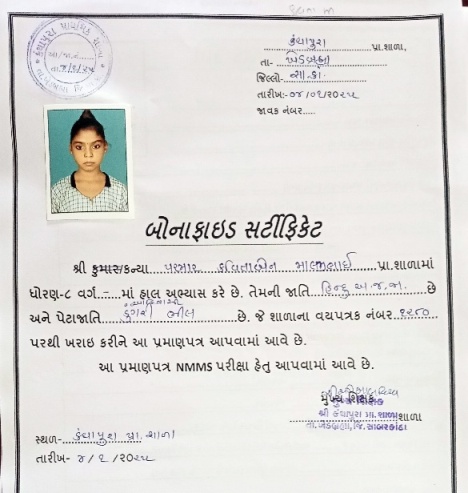 કંથાપુરા પ્રા.શાળા,
તા- ખેડબ્રહ્મા
જિલ્લો- સા.કાં.
તારીખ:-૦૪/૦૬/૨૦૨૫
જાવક નંબર.....
બોનાફાઇડ સર્ટીફિકેટ
શ્રી કુમાર/કન્યા પરમાર કવિતાબેન માલજીભાઈ પ્રા.શાળામાં
ધોરણ-૮ વર્ગ.-... માં હાલ અભ્યાસ કરે છે. તેમની જાતિ હિન્દુ અ.જ.જા. છે
અને પેટાજાતિ ડુંગરી ભીલ છે. જે શાળાના વયપત્રક નંબર ૧૨૮૦
પરથી ખરાઇ કરીને આ પ્રમાણપત્ર આપવામાં આવે છે.
આ પ્રમાણપત્ર NMMS પરીક્ષા હેતુ આપવામાં આવે છે.
મુખ્ય શિક્ષક
શ્રી કંથાપુરા પ્રા. શાળા શાળા
તા.ખેડબ્રહ્મા, જિ.સાબરકાંઠા
સ્થળ- કંથાપુરા પ્રા. શાળા
તારીખ- ૪/૬/૨૦૨૫